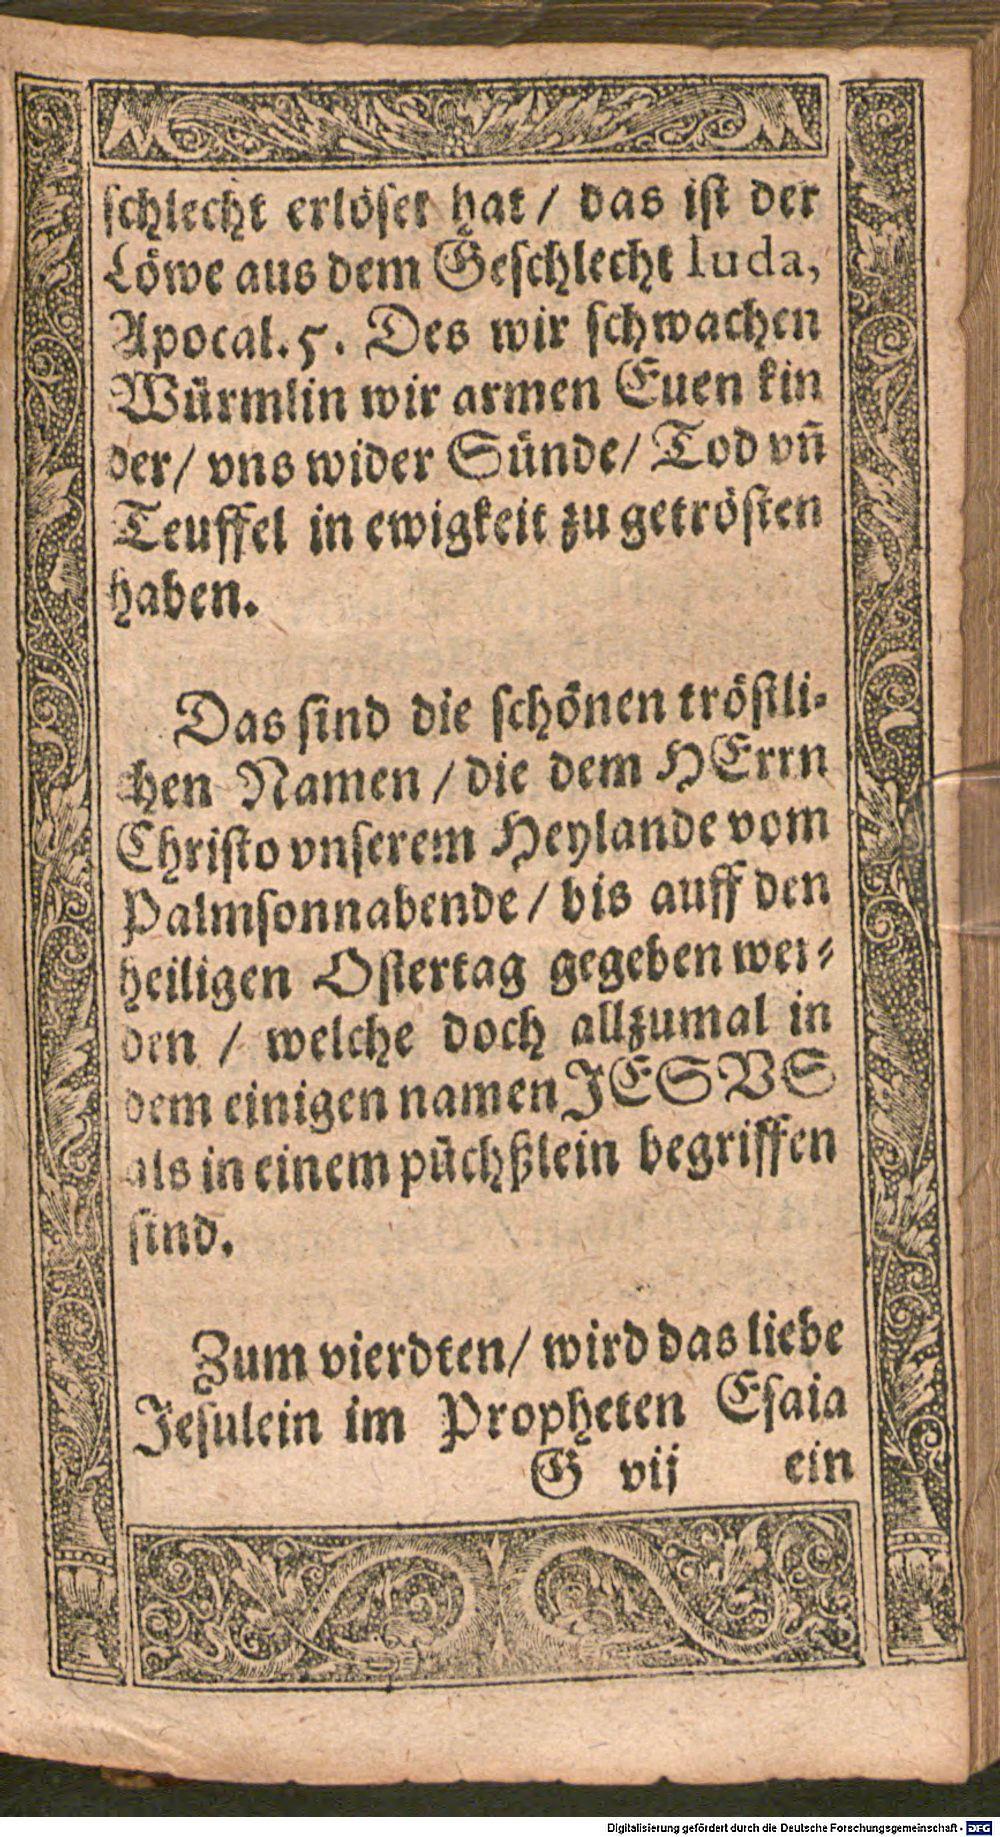 schlecht erlöset hat / das ist der
Löwe aus dem Geschlecht Iuda,
Apocal. 5. Des wir schwachen
Würmlin wir armen Euen kin
der / vns wider Sünde / Tod vñ
Teuffel in ewigkeit zu getrösten
haben.
Das sind die schönen tröstli-
chen Namen / die dem HErrn
Christo vnserem Heylande vom
Palmsonnabende / bis auff den
heiligen Ostertag gegeben wer-
den / welche doch allzumal in
dem einigen namen JESVS
als in einem püchßlein begriffen
sind.
Zum vierdten / wird das liebe
Jesulein im Propheten Esaia
G vij ein
Digitalisierung gefördert durch die Deutsche Forschungsgemeinschaft - DFG